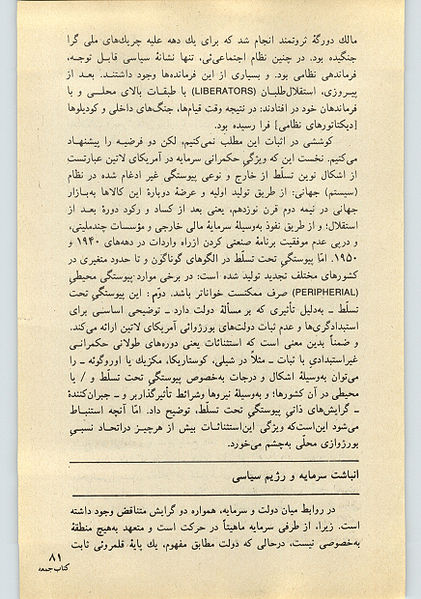 مالك دورگهٔ ثروتمند انجام شد که برای یك دهه علیه چریك‌های ملی گرا
جنگیده بود. در چنین نظام اجتماعی‌ئی، تنها نشانهٔ سیاسی قابل توجه،
فرماندهی نظامی بود. و بسیاری از این فرمانده‌ها وجود داشتند. بعد از
پیروزی، استقلال‌طلبان (LIBERATORS) با طبقات بالای محلی ـ و با
فرماندهان خود در افتادند: در نتیجه وقت قیام‌ها، جنگ‌های داخلی و کودیلوها
[دیکتاتورهای نظامی] فرا رسیده بود.
کوششی در اثبات این مطلب نمی‌کنیم، لکن دو فرضیه را پیشنهاد
می‌کنیم. نخست این که ویژگیِ حکمرانی سرمایه در آمریکای لاتین عبارتست
از اشکال نوین تسلط از خارج و نوعی پیوستگی غیر ادغام شده در نظام
(سیستم) جهانی: از طریق تولید اولیه و عرضهٔ دوبارهٔ این کالاها به‌بازار
جهانی در نیمه دوم قرن نوزدهم، یعنی بعد از کساد و رکود دورهٔ بعد از
استقلال؛ و از طریق نفوذ به‌وسیلهٔ سرمایهٔ مالی خارجی و مؤسسات چندملیتی،
و درپی عدم موفقیت برنامهٔ صنعتی کردن ازراه واردات در دهه‌های ۱۹۴۰ و
۱۹۵۰. امّا پیوستگیِ تحت تسلّط در الگوهای گوناگون و تا حدود متغیری در
کشورهای مختلف تجدید تولید شده است: در برخی موارد پیوستگیِ محیطی
(PERIPHERIAL) صرف ممکنست خواناتر باشد. دوّم: این پیوستگیِ تحت
تسلّط ـ به‌دلیل تأثیری که بر مسألهٔ دولت دارد ـ توضیحی اساسی برای
استبدادگری‌ها و عدم ثبات دولت‌های بورژوائی آمریکای لاتین ارائه می‌کند.
و ضمناً بدین معنی است که استثنائات یعنی دوره‌های طولانی حکمرانی
غیراستبدادیِ با ثبات ـ مثلاً در شیلی، کوستاریکا، مکزیك یا اوروگوئه ـ را
می‌توان به‌وسیلهٔ اشکال و درجات به‌خصوص پیوستگیِ تحت تسلّط و / یا
محیطی در آن کشورها؛ و به‌وسیلهٔ نیروها وشرائط تأثیرگذاربر و ـ جبران‌کنندهٔ
ـ گرایش‌های ذاتی پیوستگیِ تحت تسلّط، توضیح داد. امّا آنچه استنباط
می‌شود این‌است‌که ویژگی این‌استثنائات بیش از هرچیز دراتحاد نسبیِ
بورژوازی محلّی به‌چشم می‌خورد.
انباشت سرمایه و رژیم سیاسی
در روابط میان دولت و سرمایه، همواره دو گرایش متناقض وجود داشته
است. زیرا، از طرفی سرمایه ماهیتاً در حرکت است و متعهد به‌هیچ منطقهٔ
به‌خصوصی نیست، درحالی که دولت مطابق مفهوم، یك پایهٔ قلمروئی ثابت
۸۱
کتاب جمعه